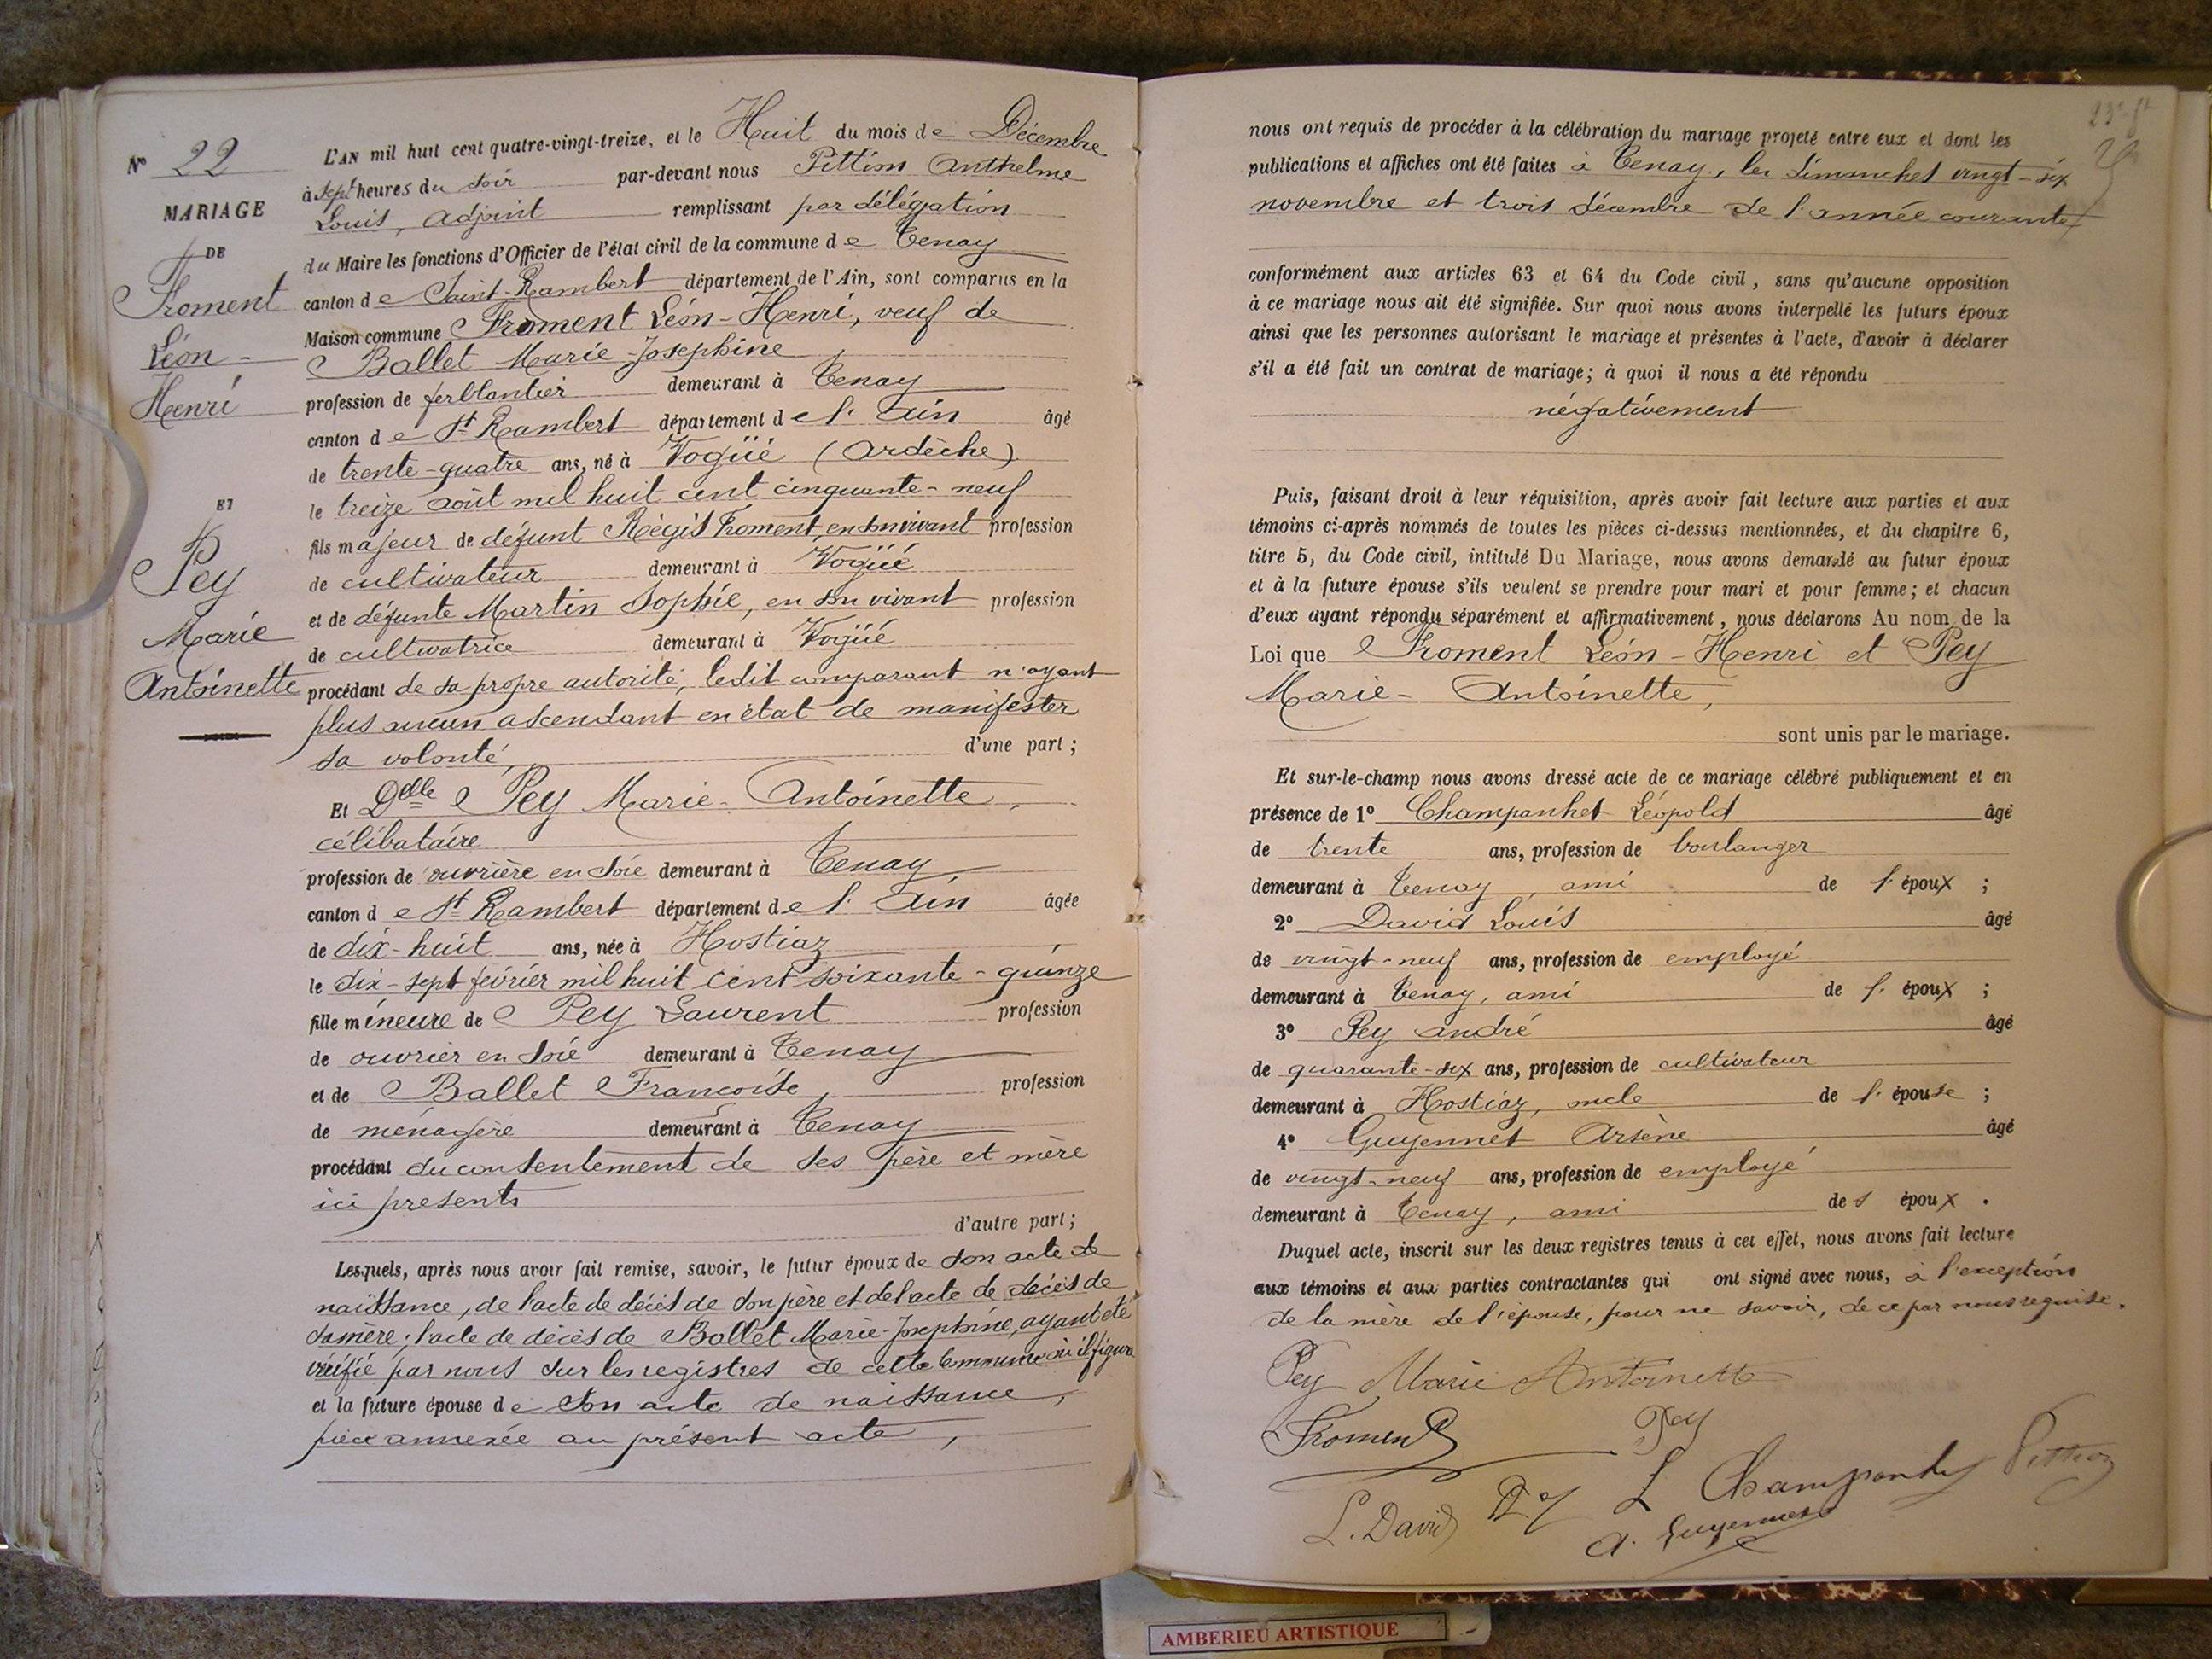 N° 22
MARIAGE
DE
Froment
Léon-
Henri
ET
Pey
Marie
Antoinette
L'AN mil huit cent quatre-vingt-treize, et le Huit du mois de Décembre
à sept heures du soir par-devant nous Pittion Anthelme
Louis, adjoint remplissant par délégation
du Maire les fonctions d'Officier de l'état civil de la commune de Tenay
canton de Saint-Rambert département de l'Ain, sont comparus en la
Maison commune Froment Léon-Henri, veuf de
Ballet Marie-Josephine
profession de ferblantier demeurant à Tenay
canton de St Rambert département de l'Ain âgé
de trente-quatre ans, né à Vogüé (Ardèche)
le treize août mil huit cent cinquante-neuf
fils majeur de défunt Régis Froment, en son vivant profession
de cultivateur demeurant à Vogüé
et de défunte Martin Sophie, en son vivant profession
de cultivatrice demeurant à Vogüé
procédant de sa propre autorité, ledit comparant n'ayant
plus aucun ascendant en état de manifester
sa volonté, d'une part;
Et Delle Pey Marie-Antoinette,
célibataire
profession de ouvrière en soie demeurant à Tenay,
canton de St Rambert département de l'Ain âgée
de dix-huit ans, née à Hostiaz,
le dix-sept février mil huit cent soixante-quinze
fille mineure de Pey Laurent profession
de ouvrier en soie demeurant à Tenay
et de Ballet Francoise, profession
de ménagère demeurant à Tenay
procédant du consentement de ses père et mère
ici presents
d'autre part;
Lesquels, après nous avoir fait remise, savoir, le futur époux de son acte de
naissance, de l'acte de décès de son père et de l'acte de décès de
sa mère; l'acte de décès de Ballet Marie-Josephine, ayant été
vérifié par nous sur les registres de cette commune où il figure
et la future épouse de son acte de naissance,
pièce annexée au présent acte,
nous ont requis de procéder à la célébration du mariage projeté entre eux et dont les
publications et affiches ont été faites à Tenay, les dimanches vingt-six
novembre et trois décembre de l'année courante
conformément aux articles 63 et 64 du Code civil, sans qu'aucune opposition
à ce mariage nous ait été signifiée. Sur quoi nous avons interpellé les futurs époux
ainsi que les personnes autorisant le mariage et présentes à l'acte, d'avoir à déclarer
s'il a été fait un contrat de mariage; à quoi il nous a été répondu
négativement
Puis, faisant droit à leur réquisition, après avoir fait lecture aux parties et aux
témoins ci-après nommés de toutes les pièces ci-dessus mentionnées, et du chapitre 6,
titre 5, du Code civil, intitulé Du Mariage, nous avons demandé au futur époux
et à la future épouse s'ils veulent se prendre pour mari et pour femme; et chacun
d'eux ayant répondu séparément et affirmativement, nous déclarons Au nom de la
Loi que Froment Léon-Henri et Pey
Marie-Antoinette,
sont unis par le mariage.
Et sur-le-champ nous avons dressé acte de ce mariage célébré publiquement et en
présence de 1° Champanhet Léopold âgé
de trente ans, profession de boulanger
demeurant à Tenay, ami de l'époux;
2° David Louis âgé
de vingt-neuf ans, profession de employé
demeurant à Tenay, ami de l'époux;
3° Pey André âgé
de quarante-six ans, profession de cultivateur
demeurant à Hostiaz, oncle de l'épouse;
4° Guyennet Arsène âgé
de vingt-neuf ans, profession de employé
demeurant à Tenay, ami de l'époux.
Duquel acte, inscrit sur les deux registres tenus à cet effet, nous avons fait lecture
aux témoins et aux parties contractantes qui ont signé avec nous, à l'exception
de la mère de l'épouse, pour ne savoir, de ce par nous requise.
Pey Marie Antoinette
Froment Pey
L. David Pey L Champanhet Pittion
A. Guyennet
AMBERIEU ARTISTIQUE